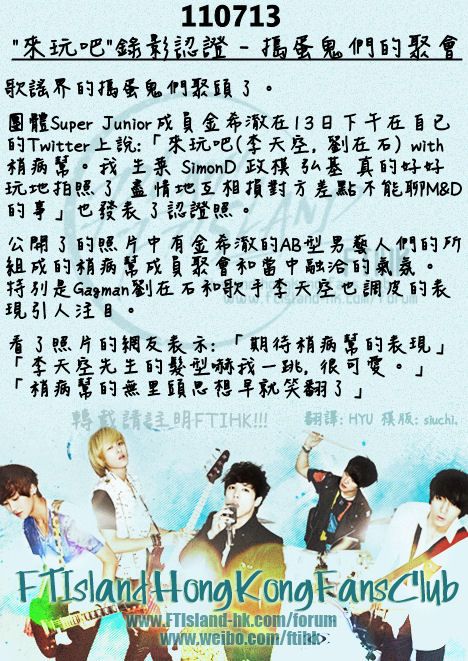 110713
"來玩吧"錄影認證 - 搗蛋鬼們的聚會
歌謠界的搗蛋鬼們聚頭了。
團體Super Junior成員金希澈在13日下午在自己
的Twitter上說:「來玩吧(李天空, 劉在石) with
梢病幫。我 生菜 SimonD 政模 弘基 真的好好
玩地拍照了 盡情地互相損對方差點不能聊M&D
的事」也發表了認證照。
公開了的照片中有金希澈的AB型男藝人們的所
組成的梢病幫成員聚會和當中融洽的氣氛。
特別是Gagman劉在石和歌手李天空也調皮的表
現引人注目。
看了照片的網友表示:「期待梢病幫的表現」
「李天空先生的髮型嚇我一跳, 很可愛。」
「梢病幫的無里頭思想早就笑翻了」
轉載請註明FTIHK!!!
翻譯: HYU 模版: siuchi.
FTIslandHongKongFansClub
www.FTIsland-hk.com/forum
www.weibo.com/ftihk